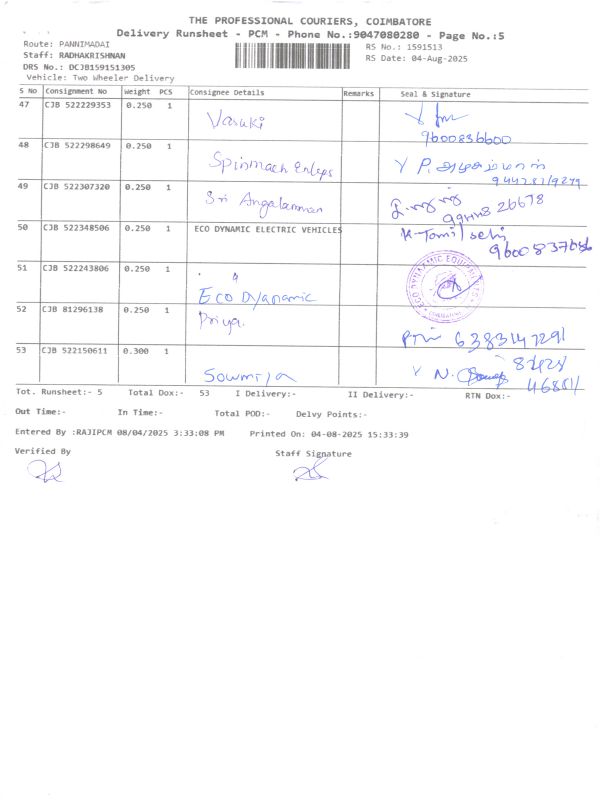 THE PROFESSIONAL COURIERS, COIMBATORE
Delivery Runsheet - PCM - Phone No.:9047080280 - Page No.:5
Route: PANNIMADAI
RS No.: 1591513
Staff: RADHAKRISHNAN
RS Date: 04-Aug-2025
DRS No.: DCJB159151305
Vehicle: Two Wheeler Delivery
S No Consignment No Weight PCS Consignee Details Remarks Seal & Signature
47 CJB 522229353 0.250 1 Vasuki
9600836600
48 CJB 522298649 0.250 1 Spinmach Enteps
49 CJB 522307320 0.250 1 Sri Angalamman
50 CJB 522348506 0.250 1 ECO DYNAMIC ELECTRIC VEHICLES K-Tamil selvi
9600837086
51 CJB 522243806 0.250 1 " Eco Dyanamic
52 CJB 81296138 0.250 1 Priya.
6383147291
53 CJB 522150611 0.300 1 Sowmiya
Tot. Runsheet:- 5 Total Dox:- 53 I Delivery:- II Delivery:- RTN Dox:-
Out Time:- In Time:- Total POD:- Delvy Points:-
Entered By :RAJIPCM 08/04/2025 3:33:08 PM Printed On: 04-08-2025 15:33:39
Verified By Staff Signature